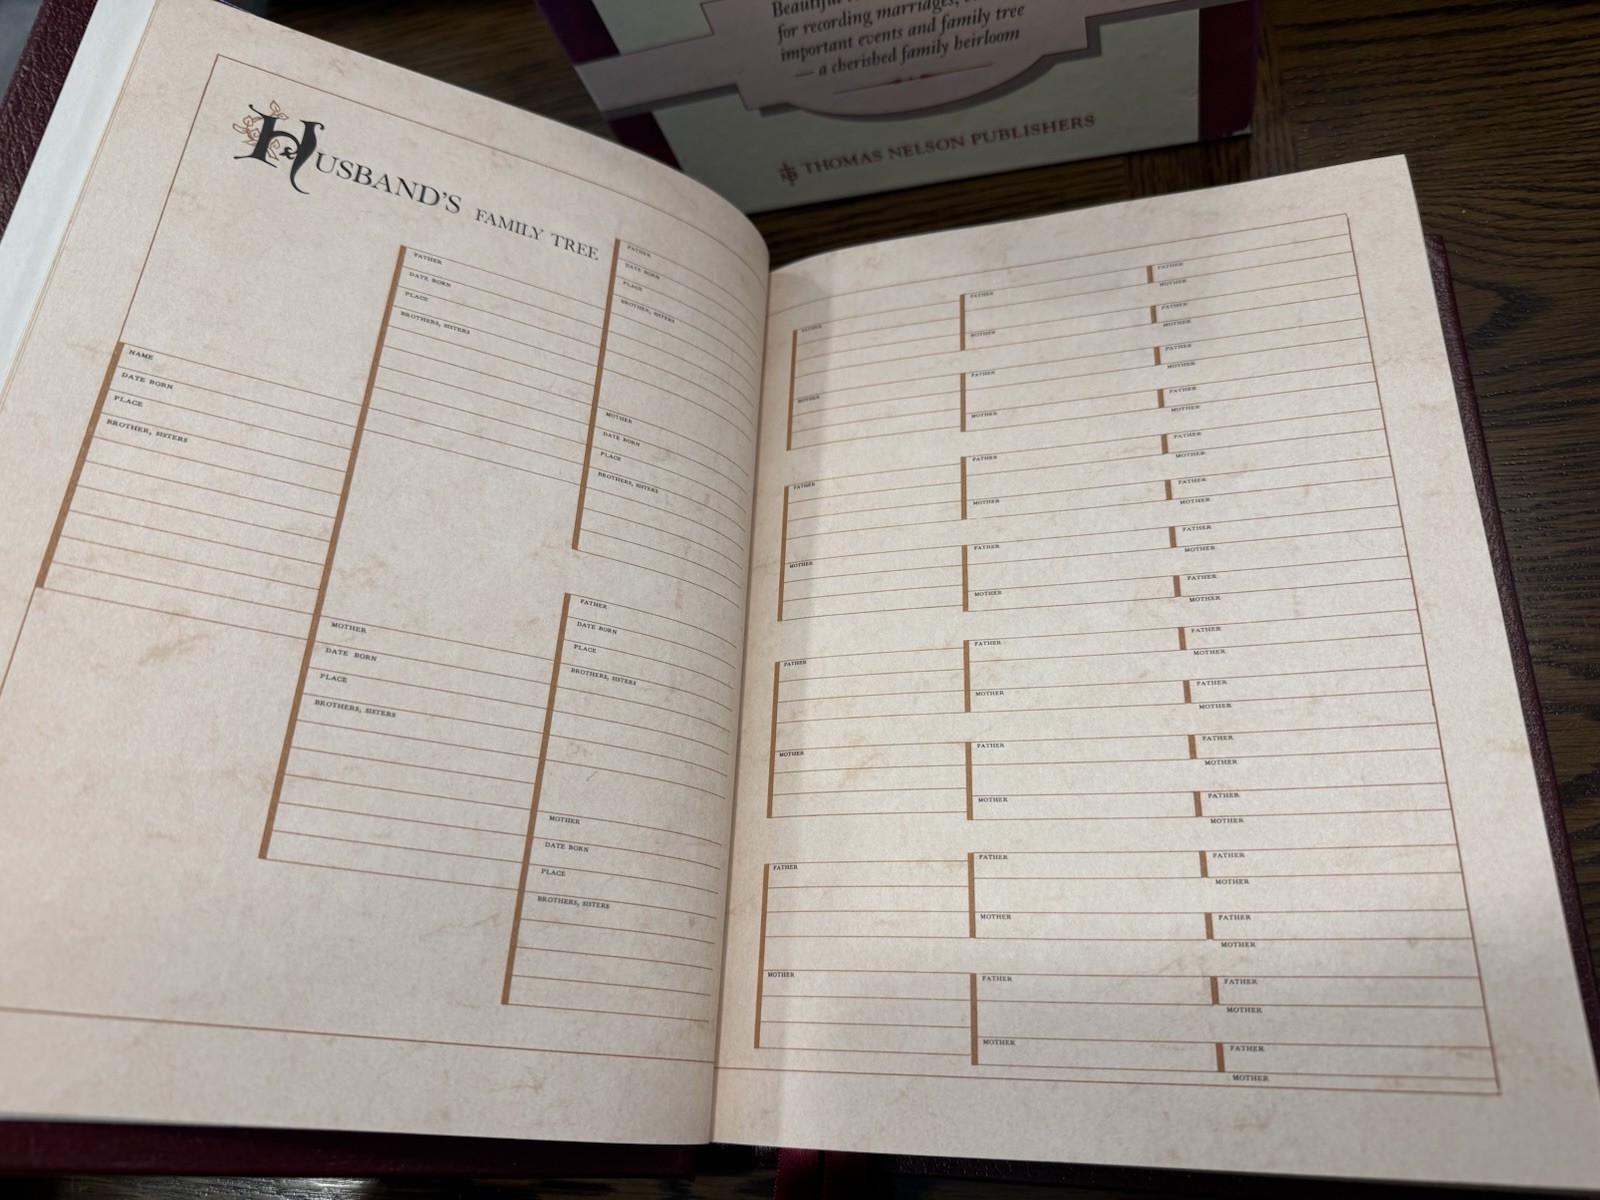 for recording marriages,
important events and family tree
— a cherished family heirloom
THOMAS NELSON PUBLISHERS
HUSBAND'S FAMILY TREE
NAME
DATE BORN
PLACE
BROTHER, SISTERS
FATHER
DATE BORN
PLACE
BROTHERS, SISTERS
MOTHER
DATE BORN
PLACE
BROTHERS, SISTERS
FATHER
DATE BORN
PLACE
BROTHER, SISTERS
MOTHER
DATE BORN
PLACE
BROTHERS, SISTERS
FATHER
DATE BORN
PLACE
BROTHERS, SISTERS
MOTHER
DATE BORN
PLACE
BROTHERS, SISTERS
FATHER
MOTHER
FATHER
MOTHER
FATHER
MOTHER
FATHER
MOTHER
FATHER
MOTHER
FATHER
MOTHER
FATHER
MOTHER
FATHER
MOTHER
FATHER
MOTHER
FATHER
MOTHER
FATHER
MOTHER
FATHER
MOTHER
FATHER
MOTHER
FATHER
MOTHER
FATHER
MOTHER
FATHER
MOTHER
FATHER
MOTHER
FATHER
MOTHER
FATHER
MOTHER
FATHER
MOTHER
FATHER
MOTHER
FATHER
MOTHER
FATHER
MOTHER
FATHER
MOTHER
FATHER
MOTHER
FATHER
MOTHER
FATHER
MOTHER
FATHER
MOTHER